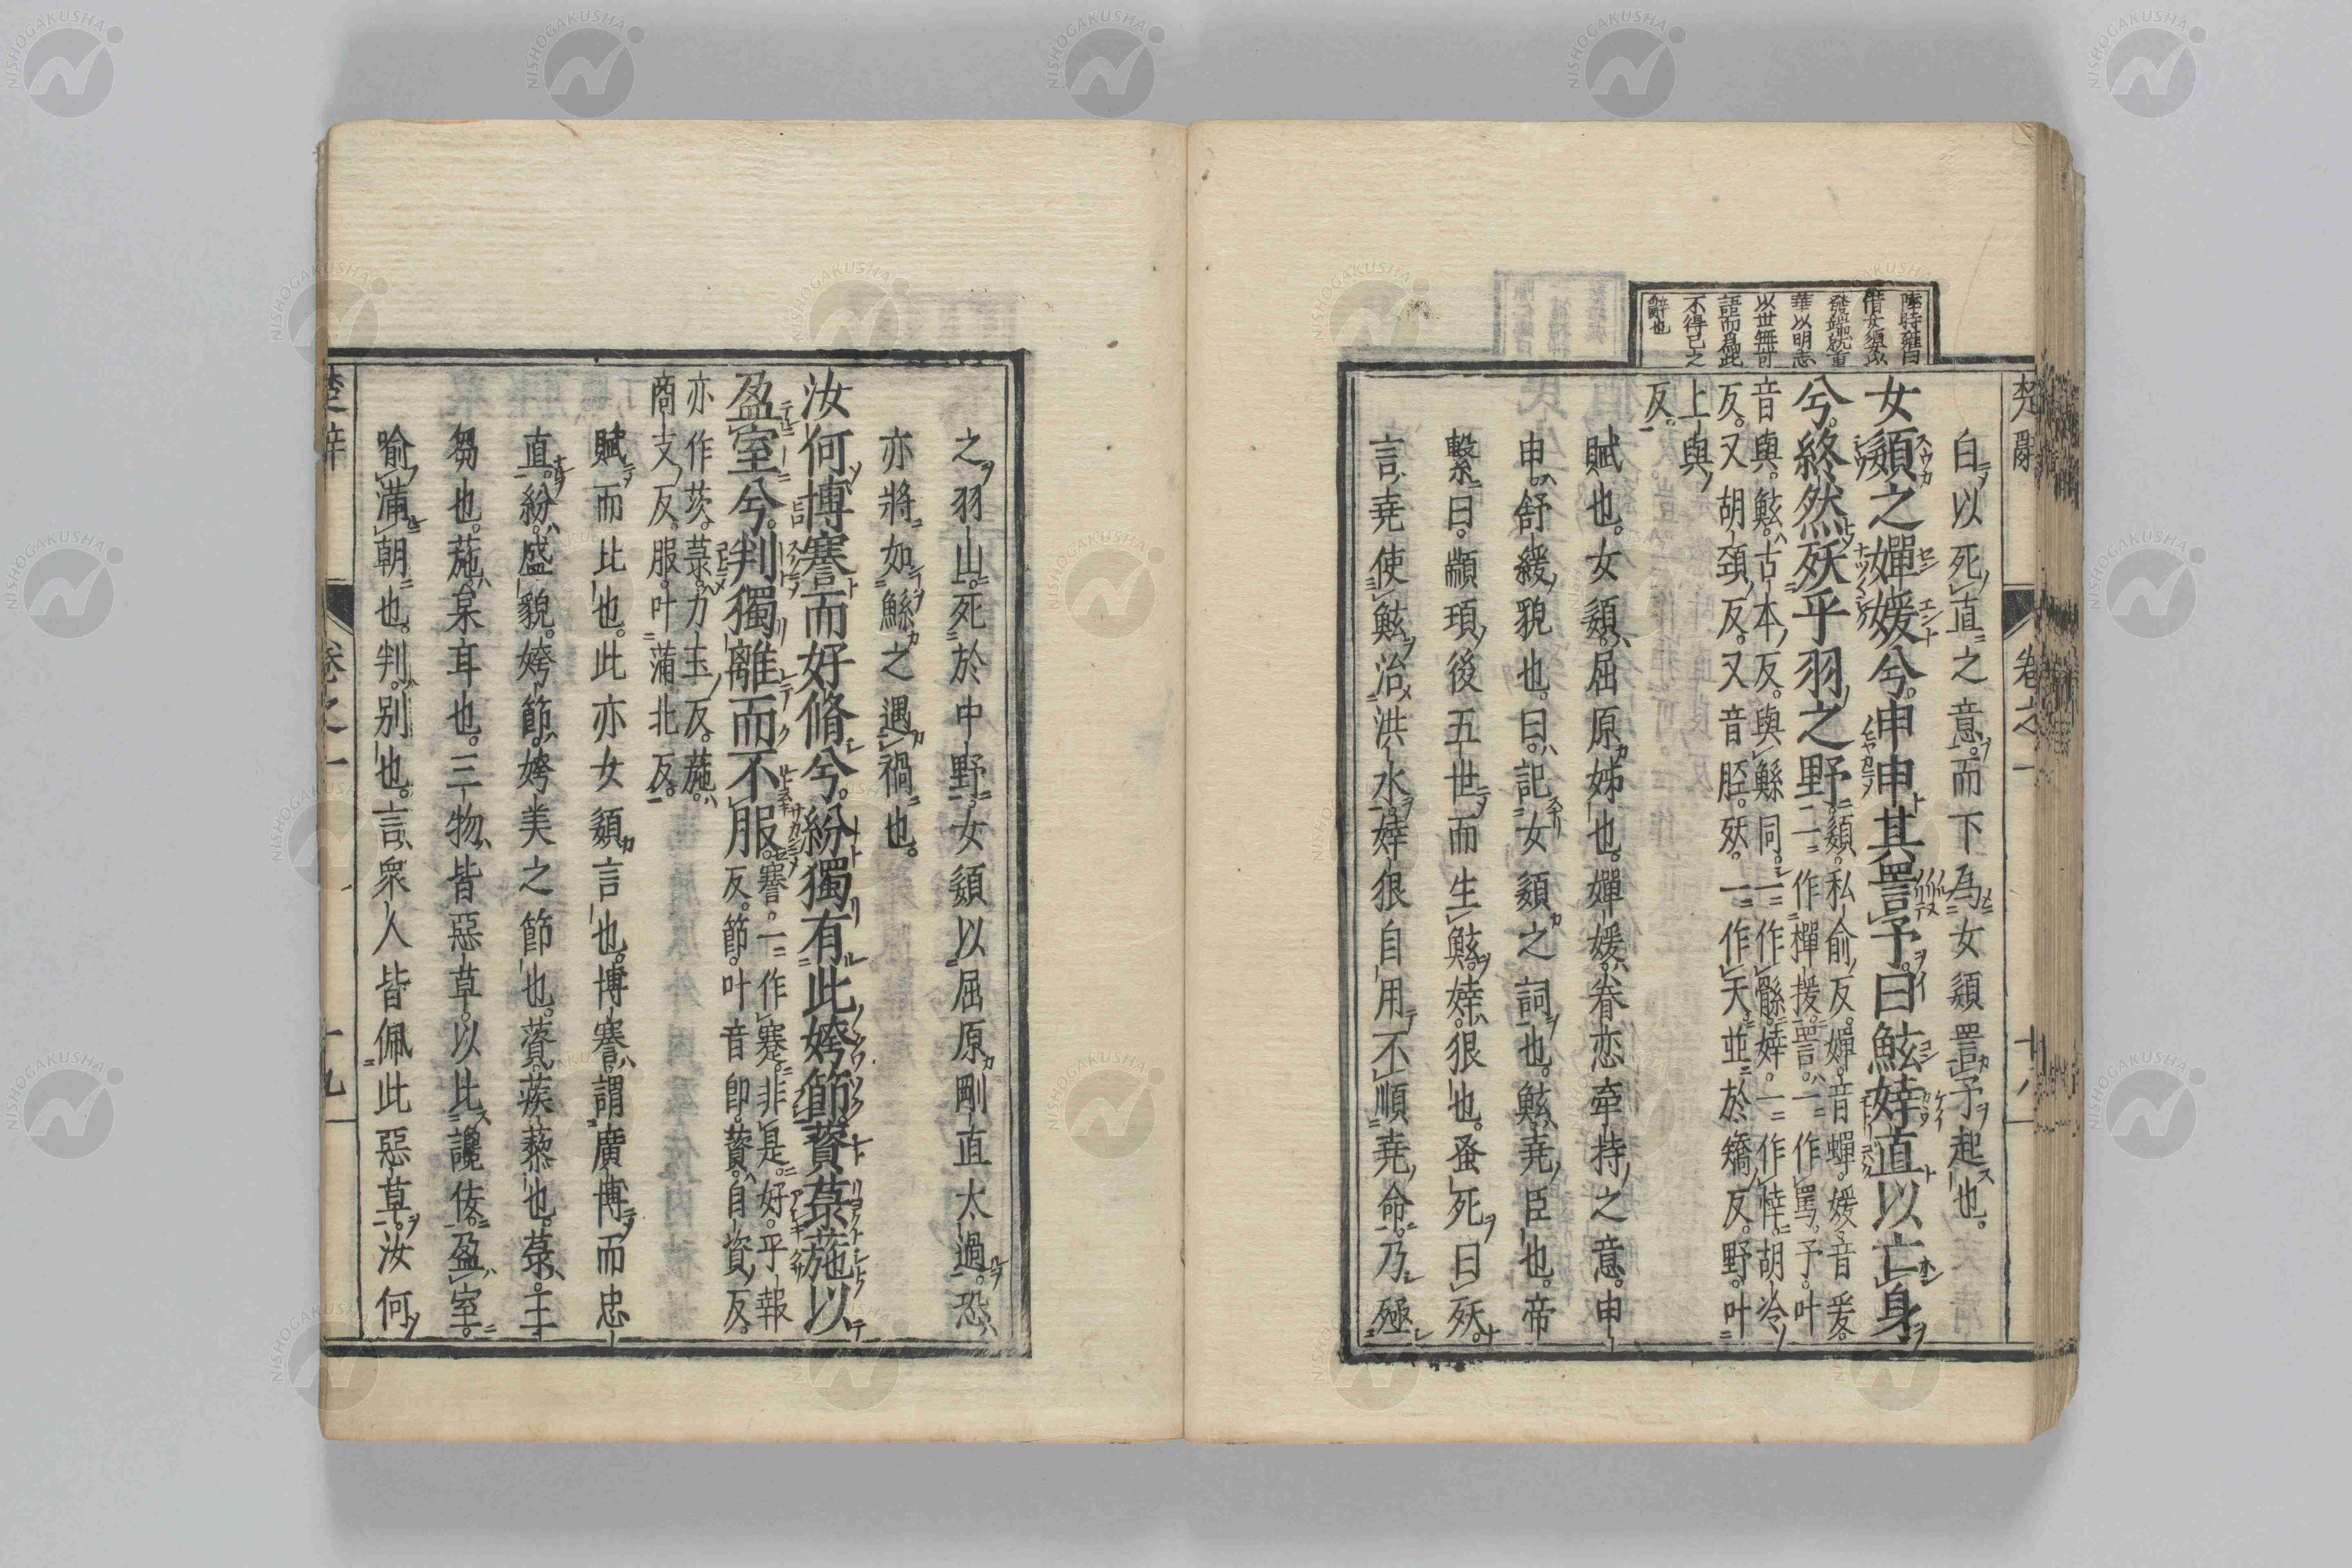 楚辭 卷之一 十八
陸時雍曰
借女須以
發端就重
華以明志
以世無可
語而爲此
不得已之
辭也
白以死直之意而下爲女嬃詈予起也。
女嬃之嬋媛兮。申申其詈予。曰鮌婞直以亡身
兮。終然殀乎羽之野。嬃。私俞反。嬋。音蟬。媛。音爰。
一作樿援。詈。一作罵。予。叶
音與。鮌。古本反。與鯀同。一作骸。婞。一作悻。胡冷
反。又胡頸反。又音脛。殀。一作夭。並於矯反。野。叶
上與
反。
賦也。女嬃。屈原姊也。嬋媛。眷恋牽持之意。申
申。舒緩貌也。曰。記女嬃之詞也。鮌。堯臣也。帝
繫曰。顓頊後五世而生鮌。婞。狠也。蚤死曰殀。
言堯使鮌治洪水。婞狠自用。不順堯命。乃殛
之羽山。死於中野。女嬃以屈原剛直太過。恐
亦將如鯀之遇禍也。
汝何博謇而好脩兮。紛獨有此姱節。薋菉葹以
盈室兮。判獨離而不服。謇。一作蹇。非是。好。乎報
反。節。叶音卽。薋。自資反。
亦作茨。菉。力玉反。葹。
商支反。服。叶蒲北反。
賦而比也。此亦女嬃言也。博謇。謂廣博而忠
直。紛。盛貌。姱節。姱美之節也。薋。蒺藜也。菉。王
芻也。葹。枲耳也。三物皆惡草。以比讒佞。盈室。
喻滿朝也。判。別也。言衆人皆佩此惡草。汝何
楚辭 卷之一 十九
NISHOGAKUSHA